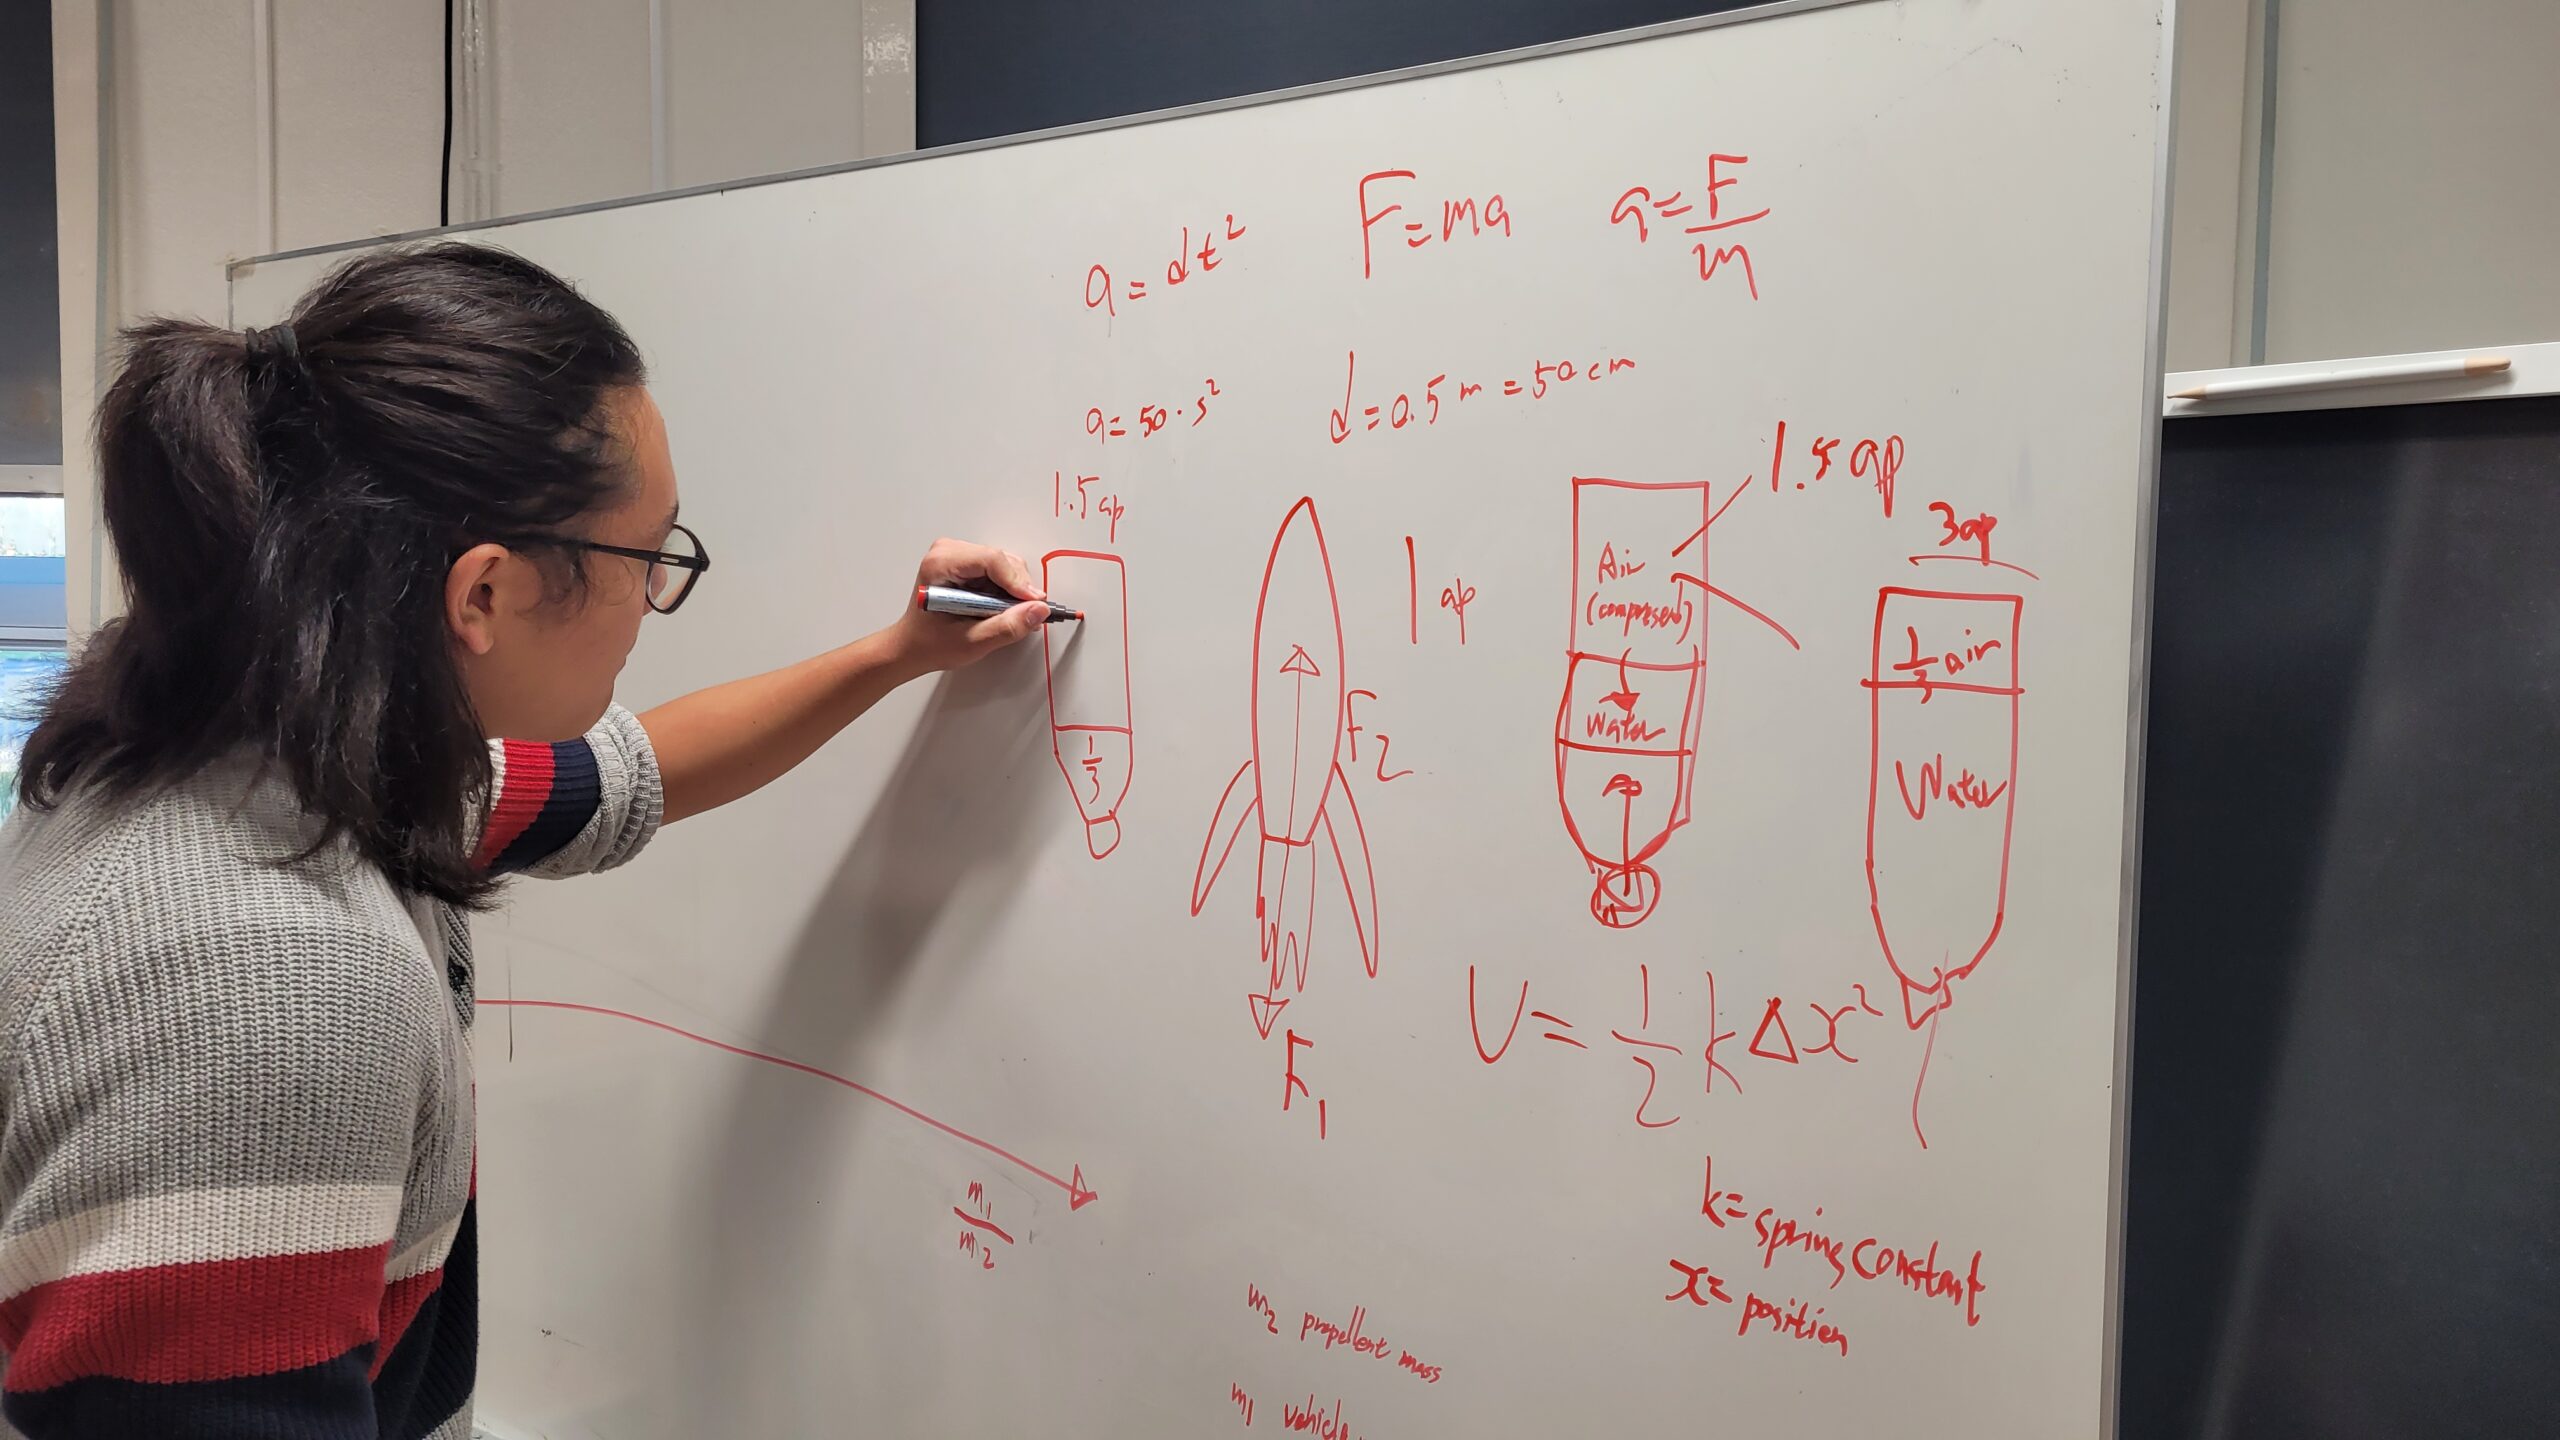 a = dt²
F = ma
a = F/m
a = 50 · s²
d = 0.5 m = 50 cm
1.5 ap
1/3
1 ap
F2
F1
1.5 ap
Air
(compressed)
Water
3 ap
1/3 air
Water
U = 1/2 k Δx²
k = spring constant
x = position
m1/m2
m2 propellent mass
m1 vehicle